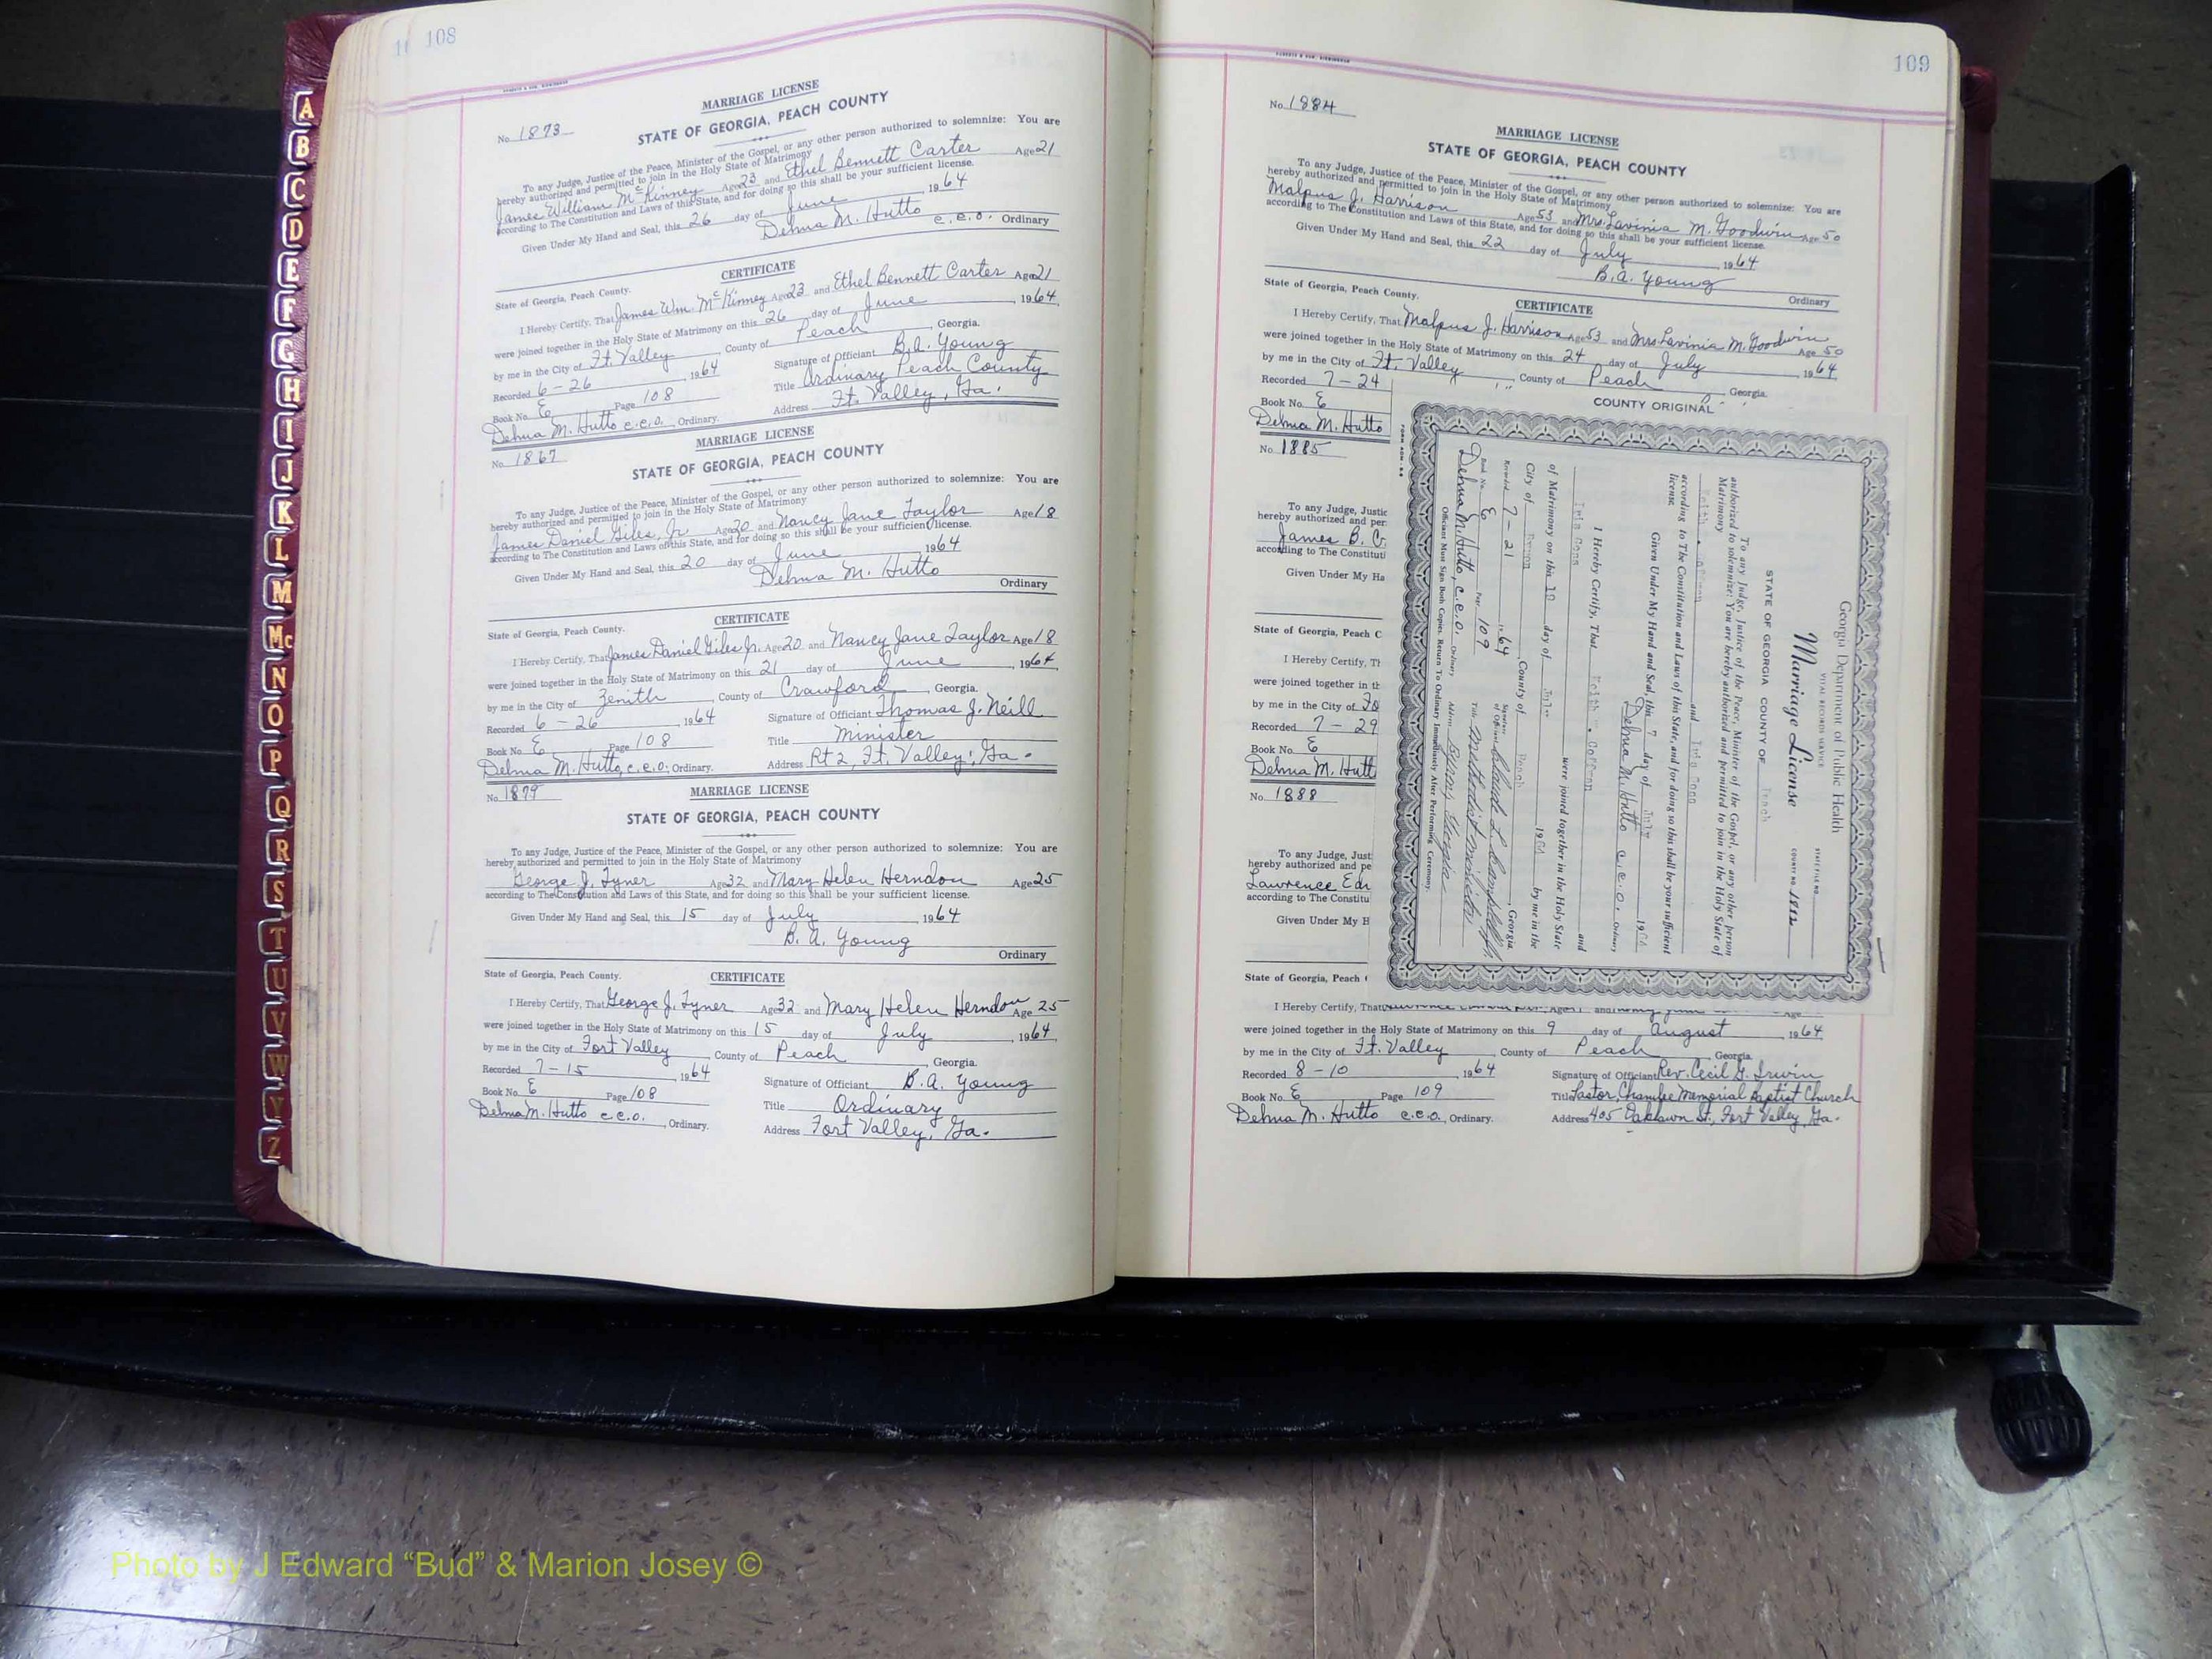 108
MARRIAGE LICENSE
No. 1873
STATE OF GEORGIA, PEACH COUNTY
To any Judge, Justice of the Peace, Minister of the Gospel, or any other person authorized to solemnize: You are
hereby authorized and permitted to join in the Holy State of Matrimony
James William McKinney Age 23 and Ethel Bennett Carter Age 21
according to The Constitution and Laws of this State, and for doing so this shall be your sufficient license.
Given Under My Hand and Seal, this 26 day of June 1964
Delma M. Hutto c.c.o. Ordinary
CERTIFICATE
State of Georgia, Peach County.
I Hereby Certify, That James Wm. McKinney Age 23 and Ethel Bennett Carter Age 21
were joined together in the Holy State of Matrimony on this 26 day of June, 1964
by me in the City of Ft. Valley County of Peach, Georgia.
Recorded 6-26 1964
Signature of Officiant B.A. Young
Book No. E Page 108
Title Ordinary Peach County
Delma M. Hutto c.c.o., Ordinary.
Address Ft. Valley, Ga.
MARRIAGE LICENSE
No. 1867
STATE OF GEORGIA, PEACH COUNTY
To any Judge, Justice of the Peace, Minister of the Gospel, or any other person authorized to solemnize: You are
hereby authorized and permitted to join in the Holy State of Matrimony
James Daniel Giles, Jr Age 20 and Nancy Jane Taylor Age 18
according to The Constitution and Laws of this State, and for doing so this shall be your sufficient license.
Given Under My Hand and Seal, this 20 day of June 1964
Delma M. Hutto
Ordinary
CERTIFICATE
State of Georgia, Peach County.
I Hereby Certify, That James Daniel Giles Jr. Age 20 and Nancy Jane Taylor Age 18
were joined together in the Holy State of Matrimony on this 21 day of June, 1964
by me in the City of Zenith, County of Crawford, Georgia.
Recorded 6-26, 1964
Signature of Officiant Thomas J. Neill
Book No. E Page 108
Title Minister
Delma M. Hutto, c.c.o., Ordinary.
Address Rt 2, Ft. Valley, Ga.
No. 1879
MARRIAGE LICENSE
STATE OF GEORGIA, PEACH COUNTY
To any Judge, Justice of the Peace, Minister of the Gospel, or any other person authorized to solemnize: You are
hereby authorized and permitted to join in the Holy State of Matrimony
George J. Tyner Age 32 and Mary Helen Herndon Age 25
according to The Constitution and Laws of this State, and for doing so this shall be your sufficient license.
Given Under My Hand and Seal, this 15 day of July, 1964
B. A. Young
Ordinary
State of Georgia, Peach County.
CERTIFICATE
I Hereby Certify, That George J. Tyner Age 32 and Mary Helen Herndon Age 25
were joined together in the Holy State of Matrimony on this 15 day of July, 1964
by me in the City of Fort Valley, County of Peach, Georgia.
Recorded 7-15 1964
Signature of Officiant B.A. Young
Book No. E Page 108
Title Ordinary
Delma M. Hutto c.c.o., Ordinary.
Address Fort Valley, Ga.
A
B
C
D
E
F
G
H
I
J
K
L
M
Mc
N
O
P
Q
R
S
T
U
V
W
Y
Z
109
No. 1884
MARRIAGE LICENSE
STATE OF GEORGIA, PEACH COUNTY
To any Judge, Justice of the Peace, Minister of the Gospel, or any other person authorized to solemnize: You are
hereby authorized and permitted to join in the Holy State of Matrimony
Malpus J. Harrison Age 53 and Mrs. Lavinia M. Goodwin Age 50
according to The Constitution and Laws of this State, and for doing so this shall be your sufficient license.
Given Under My Hand and Seal, this 22 day of July, 1964
B.A. Young
Ordinary
State of Georgia, Peach County.
CERTIFICATE
I Hereby Certify, That Malpus J. Harrison Age 53 and Mrs Lavinia M. Goodwin Age 50
were joined together in the Holy State of Matrimony on this 24 day of July 1964
by me in the City of Ft. Valley, County of Peach, Georgia.
Recorded 7-24
Book No. E
Delma M. Hutto
No. 1885
To any Judge, Justic
hereby authorized and per
James B.
according to The Constituti
Given Under My Ha
State of Georgia, Peach C
I Hereby Certify, Th
were joined together in th
by me in the City of Fo
Recorded 7-29
Book No. E
Delma M. Hutt
No. 1888
To any Judge, Just
hereby authorized and pe
Lawrence Edw
according to The Constitu
Given Under My H
State of Georgia, Peach
I Hereby Certify, That
were joined together in the Holy State of Matrimony on this 9 day of August, 1964
by me in the City of Ft. Valley, County of Peach, Georgia.
Recorded 8-10, 1964
Signature of Officiant Rev. Cecil G. Irwin
Book No. E Page 109
Title Pastor, Chamlee Memorial Baptist Church
Delma M. Hutto c.c.o., Ordinary.
Address 405 Oaklawn St., Fort Valley, Ga.
COUNTY ORIGINAL
Georgia Department of Public Health
VITAL RECORDS SERVICE
STATE FILE NO.
Marriage License
COUNTY NO.
STATE OF GEORGIA COUNTY OF Peach
To any Judge, Justice of the Peace, Minister of the Gospel, or any other person
authorized to solemnize: You are hereby authorized and permitted to join in the Holy State of
Matrimony
and
according to The Constitution and Laws of this State, and for doing so this shall be your sufficient
license.
Given Under My Hand and Seal, this 7 day of July 19
Delma M. Hutto c.c.o. Ordinary
I Hereby Certify, That and
of Matrimony on this 19 day of were joined together in the Holy State
City of Byron County of Peach, Georgia by me in the
Recorded 7-21 1964
Book No. E Page 109
Signature of Officiant
Delma M. Hutto, c.c.o. Ordinary
Title Methodist minister
Address Byron, Georgia
Officiant Must Sign Both Copies. Return To Ordinary Immediately After Performing Ceremony.
Photo by J Edward “Bud” & Marion Josey ©